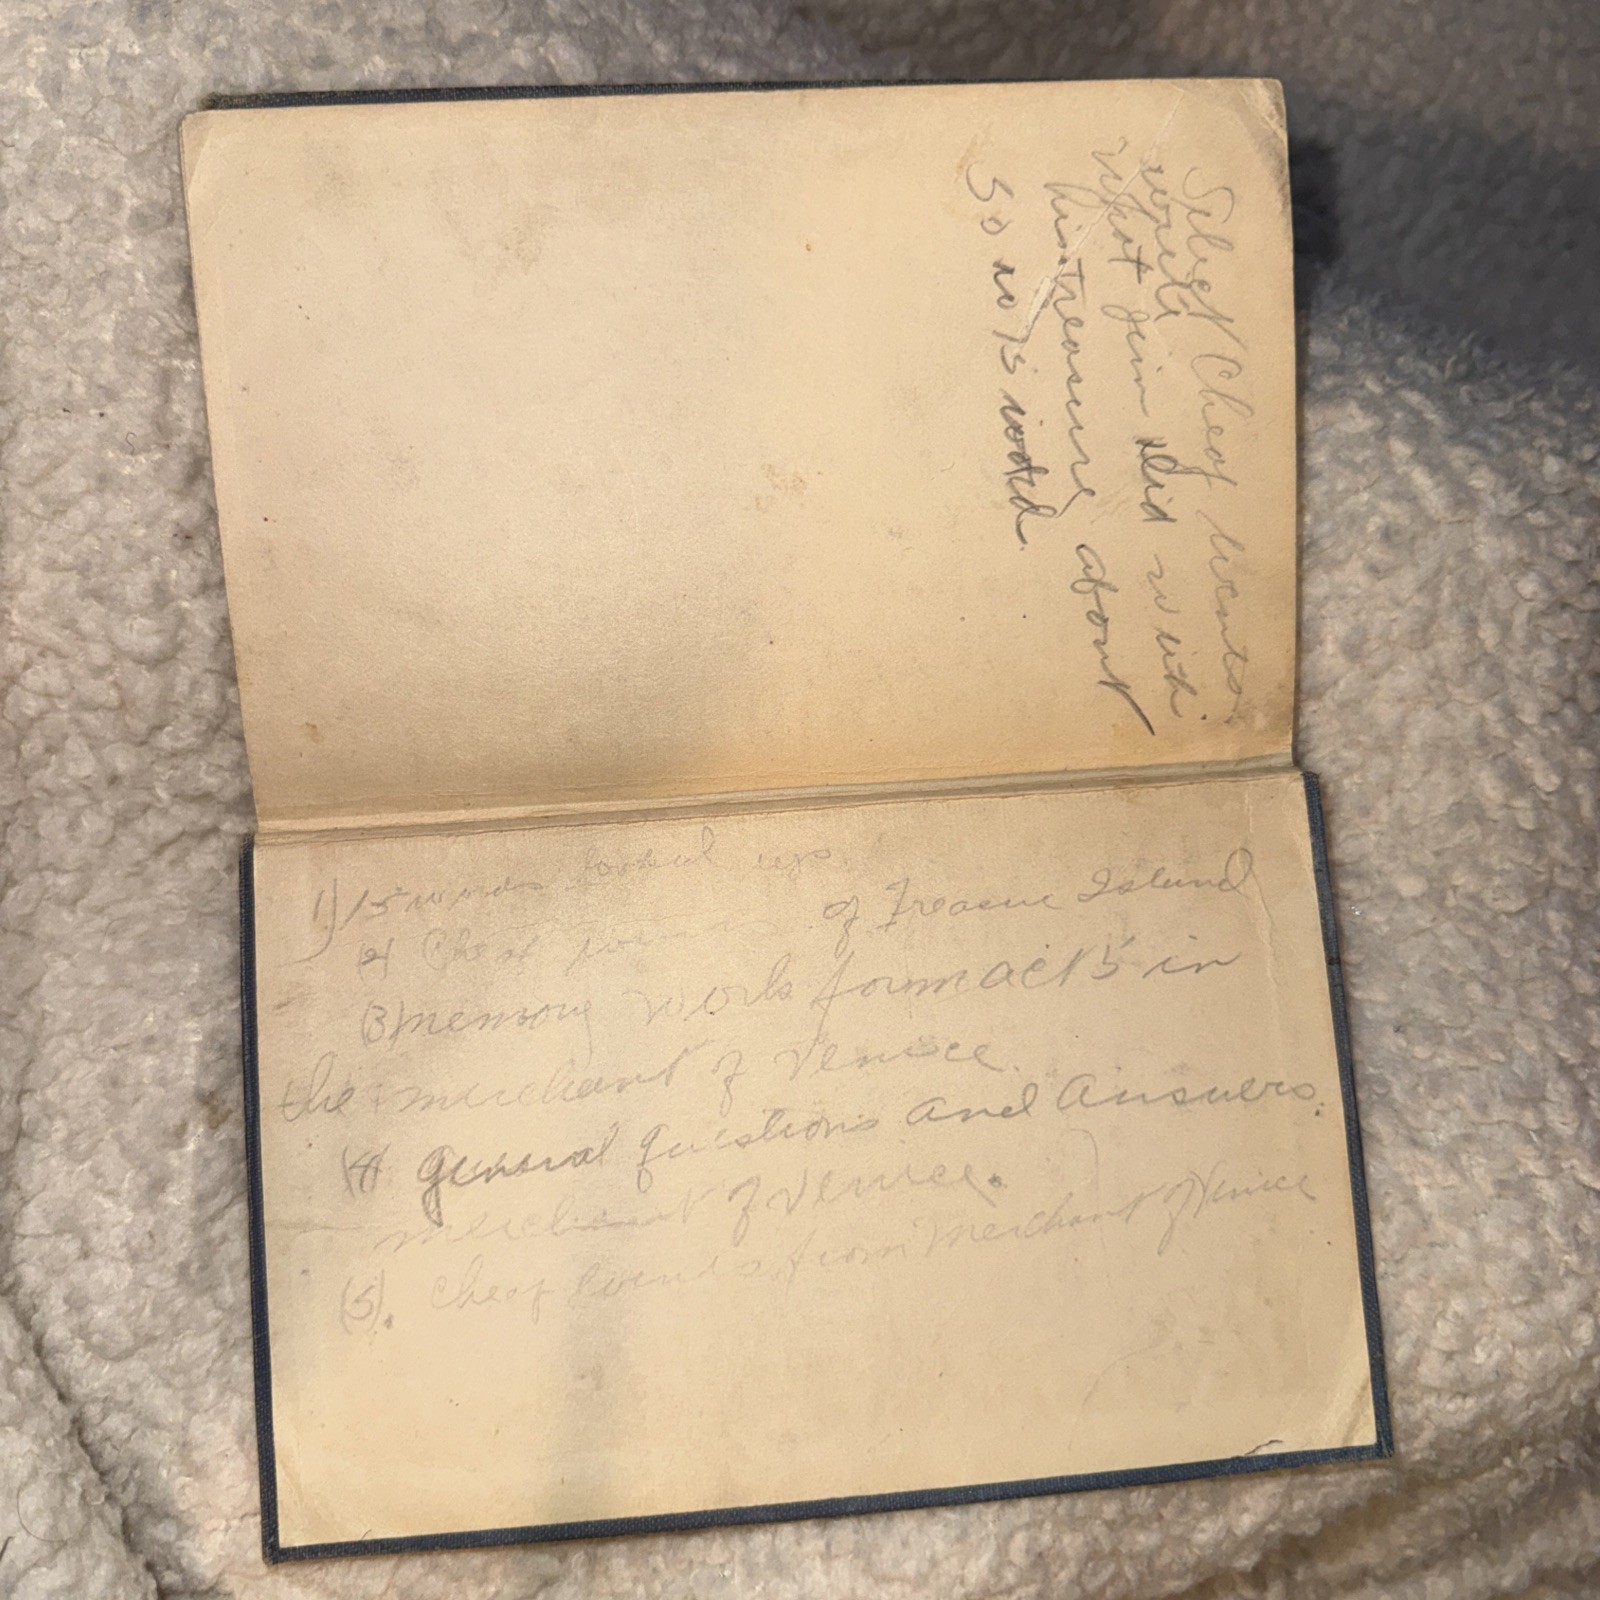 Select Cheaf Events.
write
what Jim did with
his treasure about
50 no 75 words.
1) 15 words looked up.
(2) Cheaf events of Treasure Island
(3) memory work form act 5 in
the merchant of Venice.
(4) general questions and answers.
merchant of Venice.
(5). Cheaf events from Merchant of Venice